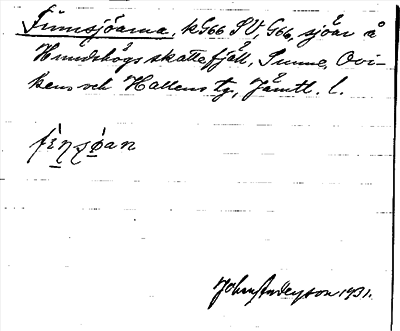 Finnsjöarna, kG66 SV, G66, sjöar å
Hundshögs skattefjäll, Sunne, Ovi-
kens och Hallens tg, Jämtl. l.
fènsøan
John Anderson 1931.